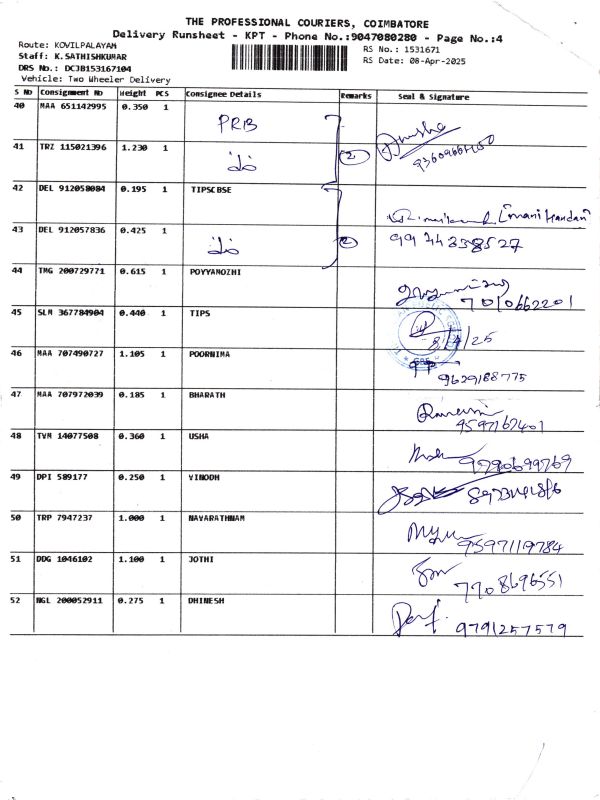 THE PROFESSIONAL COURIERS, COIMBATORE
Delivery Runsheet - KPT - Phone No.:9047080280 - Page No.:4
Route: KOVILPALAYAM
Staff: K.SATHISHKUMAR
DRS No.: DCJB153167104
Vehicle: Two Wheeler Delivery
RS No.: 1531671
RS Date: 08-Apr-2025
S NO Consignment No Weight PCS Consignee Details Remarks Seal & Signature
40 MAA 651142995 0.350 1 PRB
41 TRZ 115021396 1.230 1 2
42 DEL 912058084 0.195 1 TIPSCBSE
43 DEL 912057836 0.425 1 2 9944338527
44 TMG 200729771 0.615 1 POYYAMOZHI 7010662201
45 SLM 367784904 0.440 1 TIPS 8/4/25
46 MAA 707490727 1.105 1 POORNIMA 9629188775
47 MAA 707972039 0.185 1 BHARATH 9597162401
48 TVM 14077508 0.360 1 USHA 9790699769
49 DPI 589177 0.250 1 VINODH
50 TRP 7947237 1.000 1 NAVARATHNAM 9597119784
51 DDG 1046102 1.100 1 JOTHI 7708696551
52 NGL 200052911 0.275 1 DHINESH 9791257579